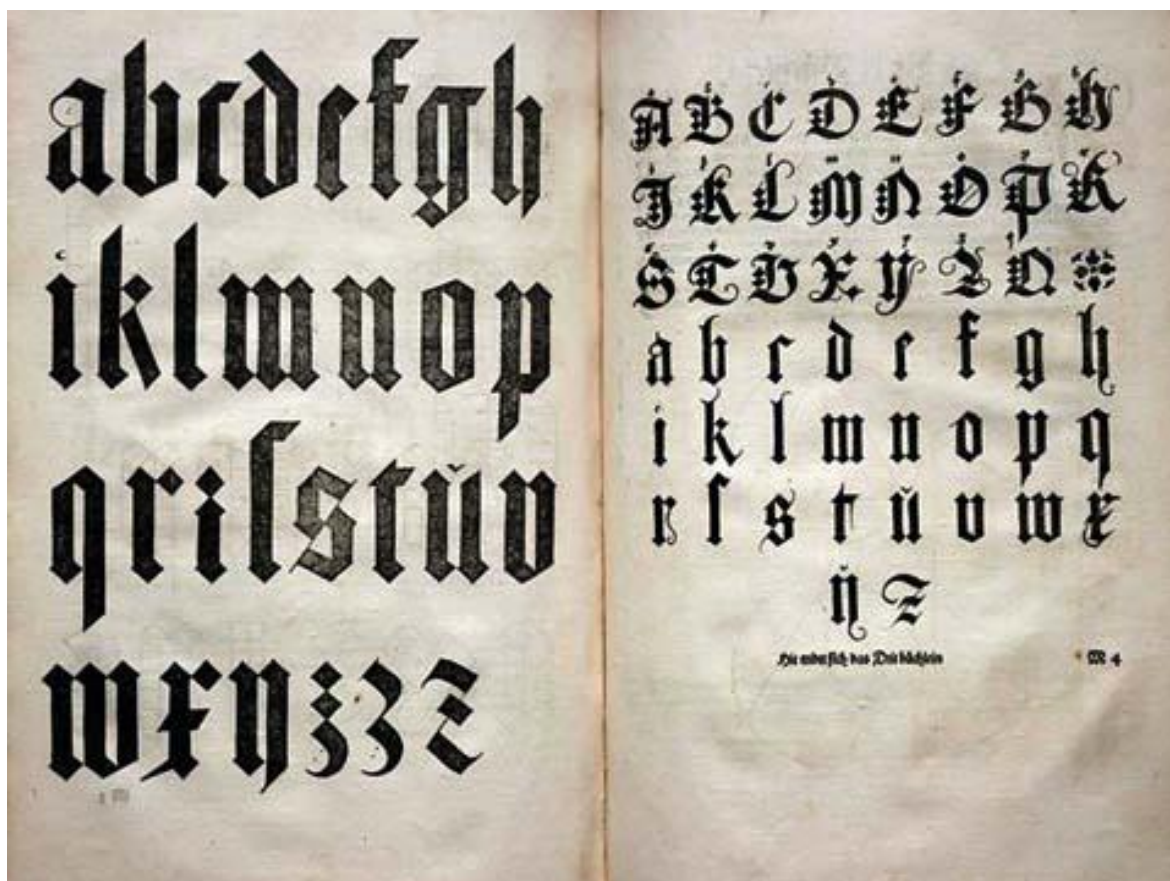 abcdefgh
iklmnop
qrıſstŭv
wxyʒ33Z
A B C D E F G H
I K L M N O P R
S T V X Y Z Q
a b c d e f g h
i k l m n o p q
r ſ s t ŭ v w x
ÿ z
Hie endet ſich das Drit büchlein
M 4